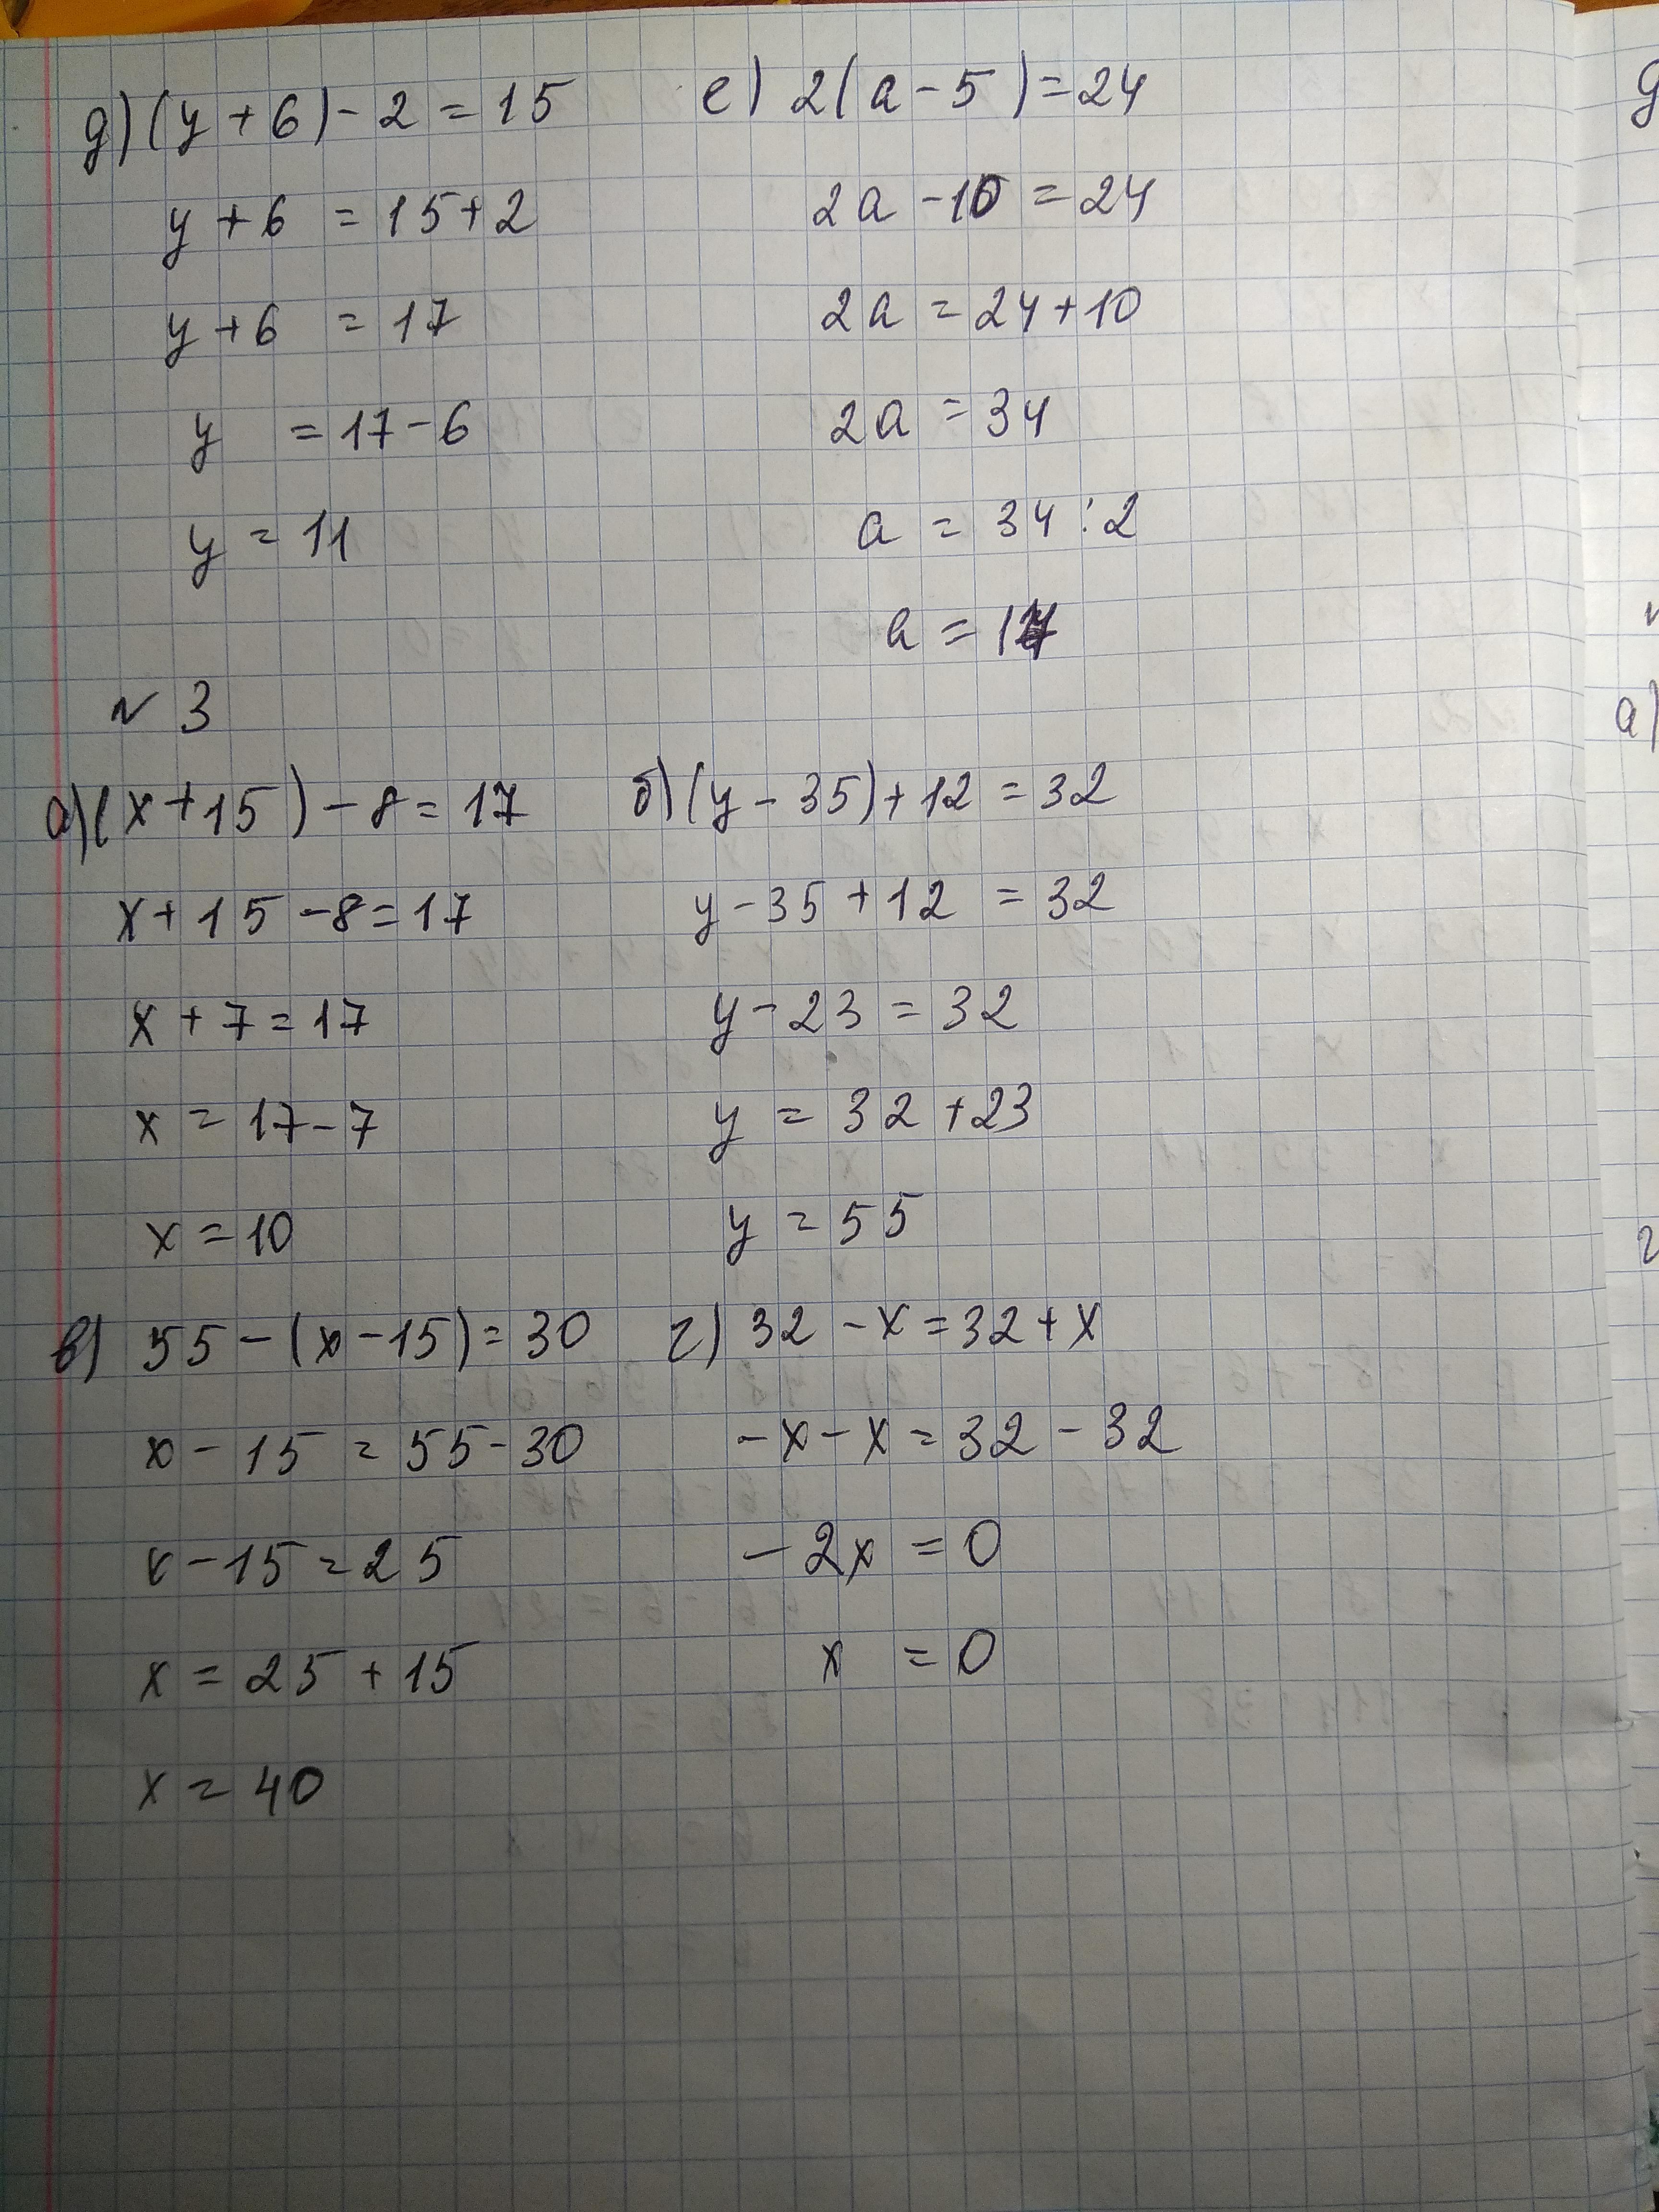 д) (y + 6) - 2 = 15
y + 6 = 15 + 2
y + 6 = 17
y = 17 - 6
y = 11
е) 2(a - 5) = 24
2a - 10 = 24
2a = 24 + 10
2a = 34
a = 34 : 2
a = 17
N 3
а) (x + 15) - 8 = 17
x + 15 - 8 = 17
x + 7 = 17
x = 17 - 7
x = 10
б) (y - 35) + 12 = 32
y - 35 + 12 = 32
y - 23 = 32
y = 32 + 23
y = 55
в) 55 - (x - 15) = 30
x - 15 = 55 - 30
x - 15 = 25
x = 25 + 15
x = 40
г) 32 - x = 32 + x
- x - x = 32 - 32
- 2x = 0
x = 0
а)